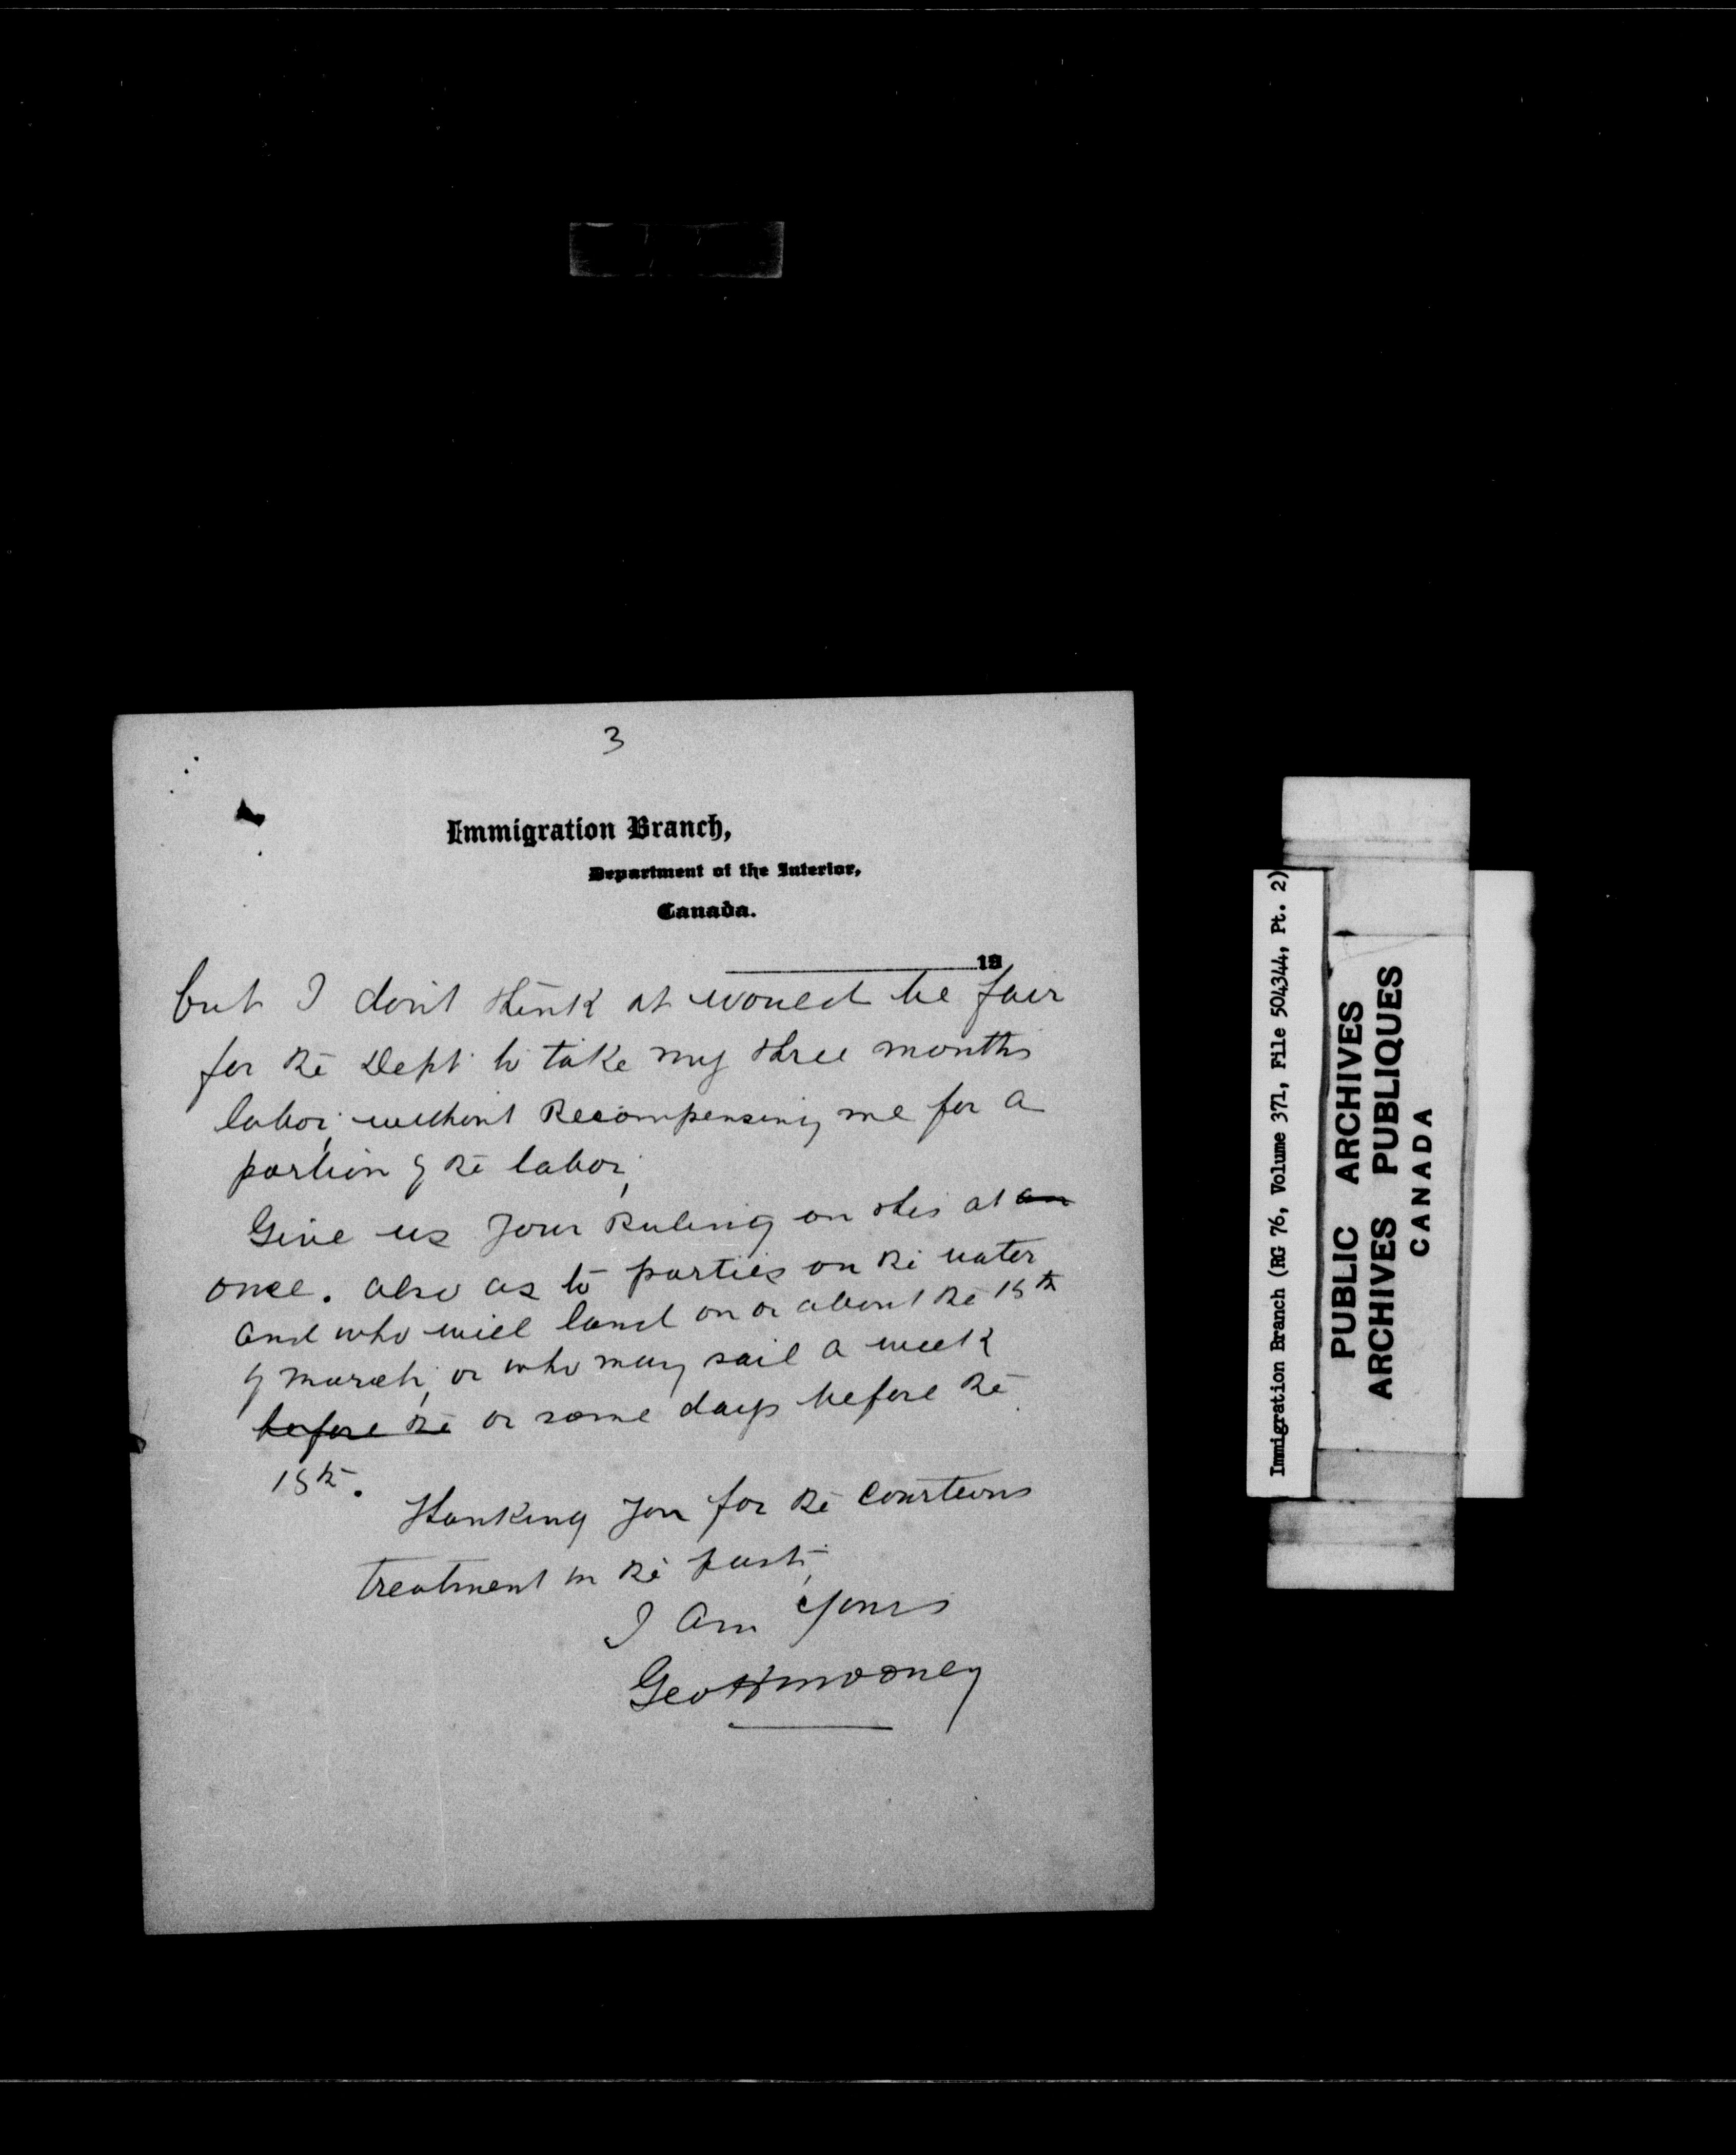 3
Immigration Branch,
Department of the Interior,
Canada.
18
but I don't think it would be fair
for the Dept. to take my three months
labor, without Recompensing me for a
portion of the labor,
Give us your Ruling on this at an
once. also as to parties on the water
and who will land on or about the 15th
of march, or who may sail a week
before the or some days before the
15th.
Thanking you for the Courteous
treatment in the past,
I am Yours
Geo H Mooney
Immigration Branch (RG 76, Volume 371, File 504344, Pt. 2)
PUBLIC ARCHIVES
ARCHIVES PUBLIQUES
CANADA